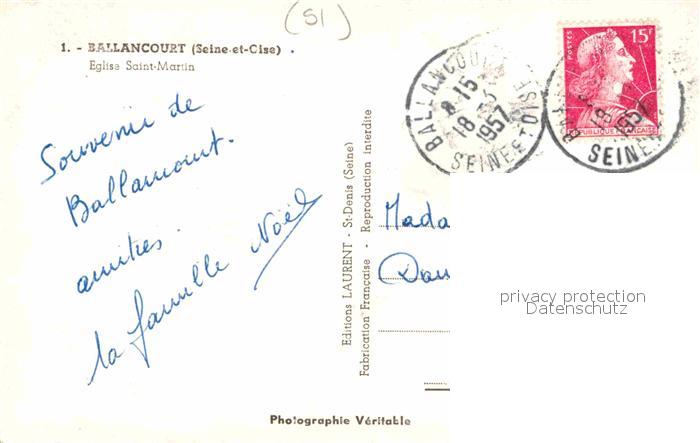 (51)
1. - BALLANCOURT (Seine-et-Oise)
Eglise Saint-Martin
Souvenir de
Ballancourt.
amitiés.
la famille Noël
Editions LAURENT - St-Denis (Seine)
Fabrication Française - Reproduction Interdite
BALLANCOU
8-15
18 -3
1957
SEINE-ET-OISE
POSTES
15F
REPUBLIQUE FRANÇAISE
18
1957
SEINE
Mada
Dau
privacy protection
Datenschutz
Photographie Véritable